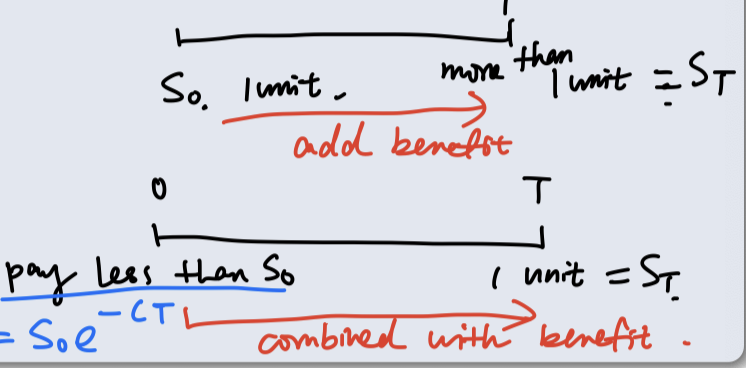 S₀. 1 unit. more than 1 unit = S_T
add benefit
0 T
pay less than S₀ 1 unit = S_T.
= S₀e^-CT combined with benefit.